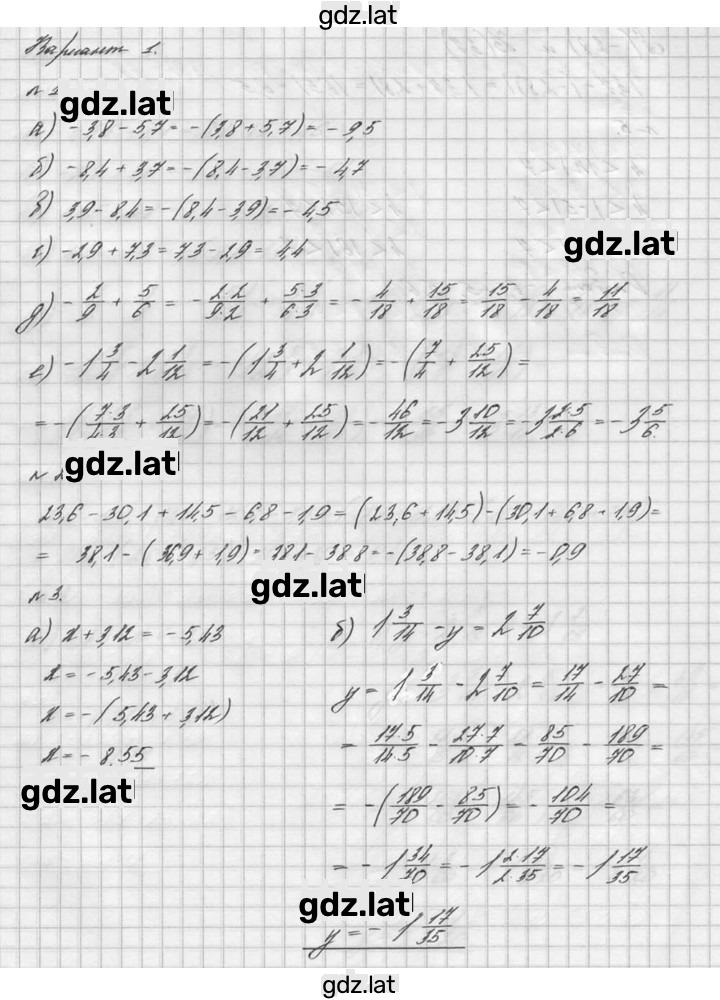 gdz.lat
Вариант 1.
gdz.lat
а) -3,8 - 5,7 = -(3,8 + 5,7) = -9,5
б) -8,4 + 3,7 = -(8,4 - 3,7) = -4,7
в) 3,9 - 8,4 = -(8,4 - 3,9) = -4,5
г) -2,9 + 7,3 = 7,3 - 2,9 = 4,4
gdz.lat
д) -2/9 + 5/6 = -2·2/9·2 + 5·3/6·3 = -4/18 + 15/18 = 15/18 - 4/18 = 11/18
е) -1 3/4 - 2 1/12 = -(1 3/4 + 2 1/12) = -(7/4 + 25/12) =
= -(7·3/4·3 + 25/12) = -(21/12 + 25/12) = -46/12 = -3 10/12 = -3 2·5/2·6 = -3 5/6.
№ 2
gdz.lat
23,6 - 30,1 + 14,5 - 6,8 - 1,9 = (23,6 + 14,5) - (30,1 + 6,8 + 1,9) =
= 38,1 - (36,9 + 1,9) = 38,1 - 38,8 = -(38,8 - 38,1) = -0,9
gdz.lat
№ 3.
а) x + 3,12 = -5,43
x = -5,43 - 3,12
x = -(5,43 + 3,12)
x = -8,55
gdz.lat
б) 1 3/14 - y = 2 7/10
y = 1 3/14 - 2 7/10 = 17/14 - 27/10 =
= 17·5/14·5 - 27·7/10·7 = 85/70 - 189/70 =
= -(189/70 - 85/70) = -104/70 =
= -1 34/70 = -1 2·17/2·35 = -1 17/35
gdz.lat
y = -1 17/35
gdz.lat